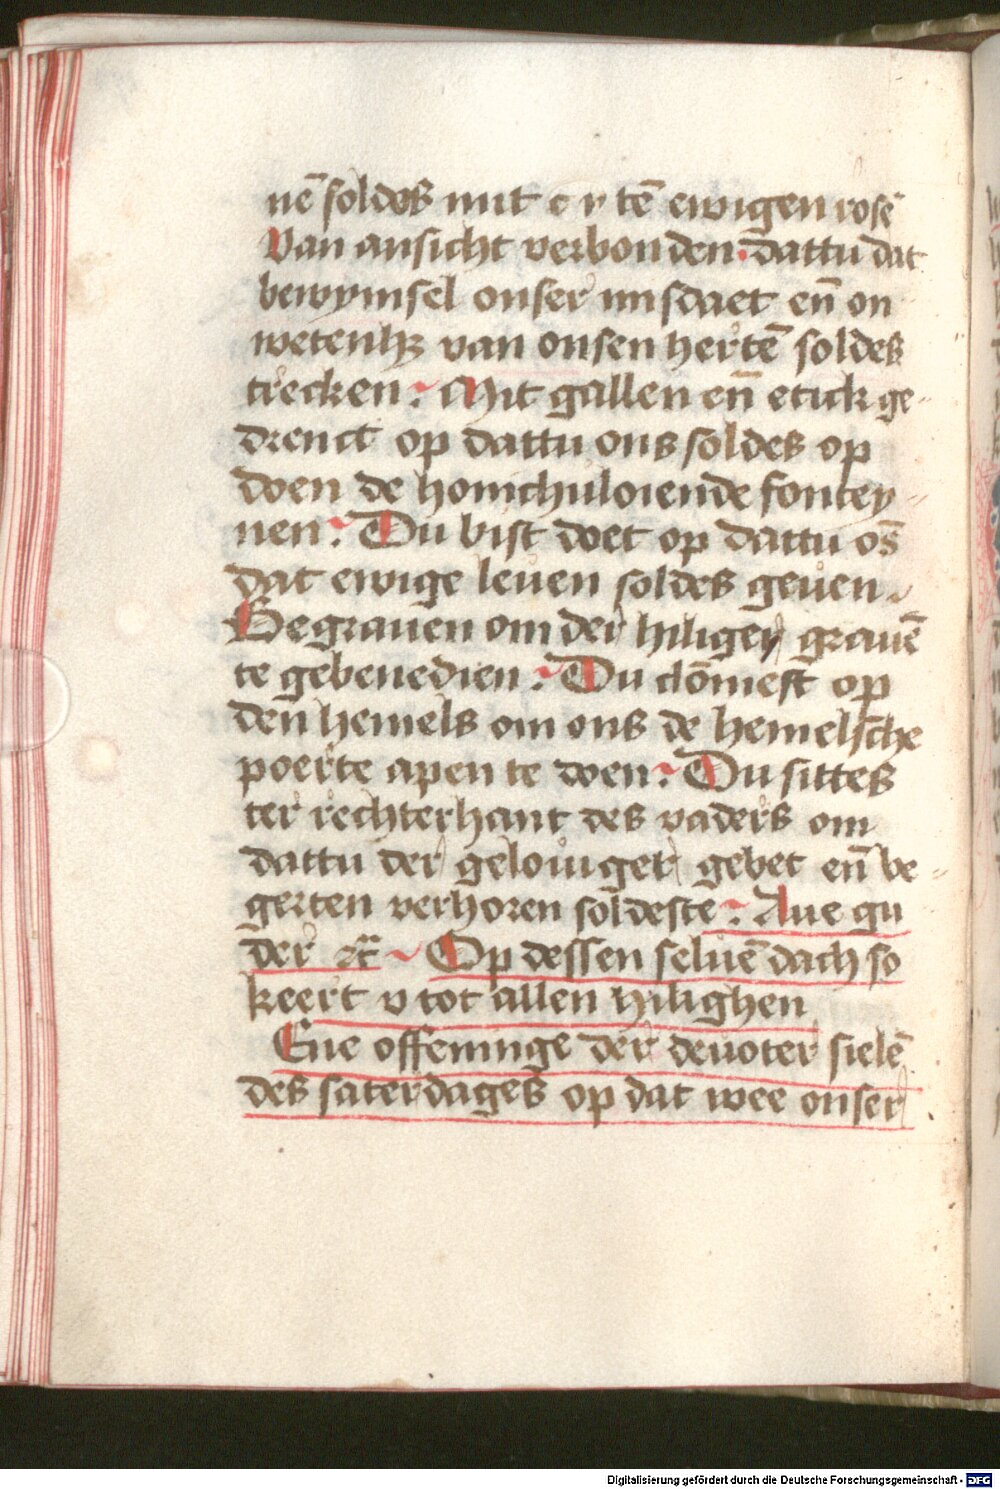 nē soldes mit c y tē ewigen rosē
Van ansicht verbonden. dattu dat
bewymsel onser misdaet eñ on
wetenhz van onsen hertē soldes
trecken. Mit gallen eñ etick ge-
drenct op dattu ons soldes op
doen de honichuloiende fontey-
nen. Du bist doet op dattu os̄
dat ewige leuen soldes geuen.
Begrauen om der hiliger grauē
te gebenedien. Du clōmest op
den hemels om ons de hemelsche
poerte apen te doen. Du sittes
ter rechterhant des vaders om
dattu der gelouiger gebet eñ be-
gerten verhoren soldeste. Aue gu
der Op dessen seluē dach so
keert v tot allen hilighen
Ene offeninge der deuoter sielē
des saterdages op dat wee onser
Digitalisierung gefördert durch die Deutsche Forschungsgemeinschaft - DFG